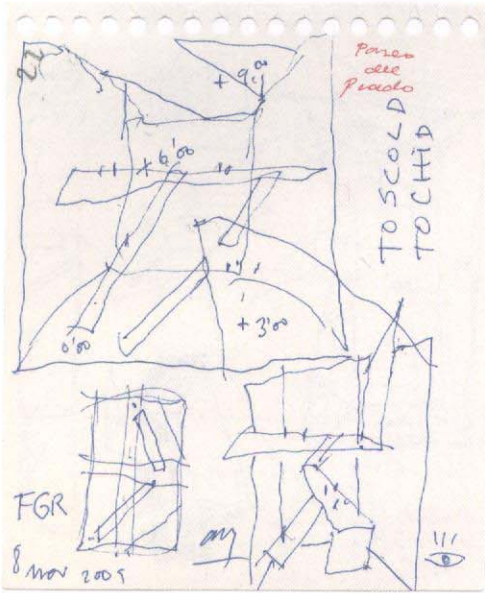 22
+ 9,00
Paseo
del
Prado
TO SCOLD
TO CHID
+ 6'00
0'00
+ 3'00
FGR
8 nov 2009